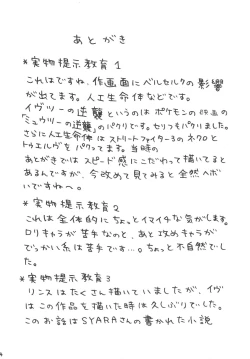 あとがき
*実物提示教育1
これはですね、作画面にベルセルクの影響
が出てます。人工生命体などです。
イヴツーの逆襲というのは ポケモンの映画の
「ミュウツーの逆襲」のパクリです。セリフもパクリました。
さらに人工生命体は ストリートファイター3の ネクロと
トゥエルヴを パクッてます。当時の
あとがきでは スピード感にこだわって描いてると
あるんですが、今改めて見てみると全然ヘボ
いですねへ。
*実物提示教育2
これは全体的に ちょっとイマイチな気がします。
ロリキャラが 苦手なのと、あと攻めキャラが
でっかい糸は苦手です…。ちょっと不自然でし
た。
*実物提示教育3
リンスはたくさん描いていましたが、イヴ
はこの作品を描いた時は久しぶりでした。
このお話はSYARAさんの書かれた小説